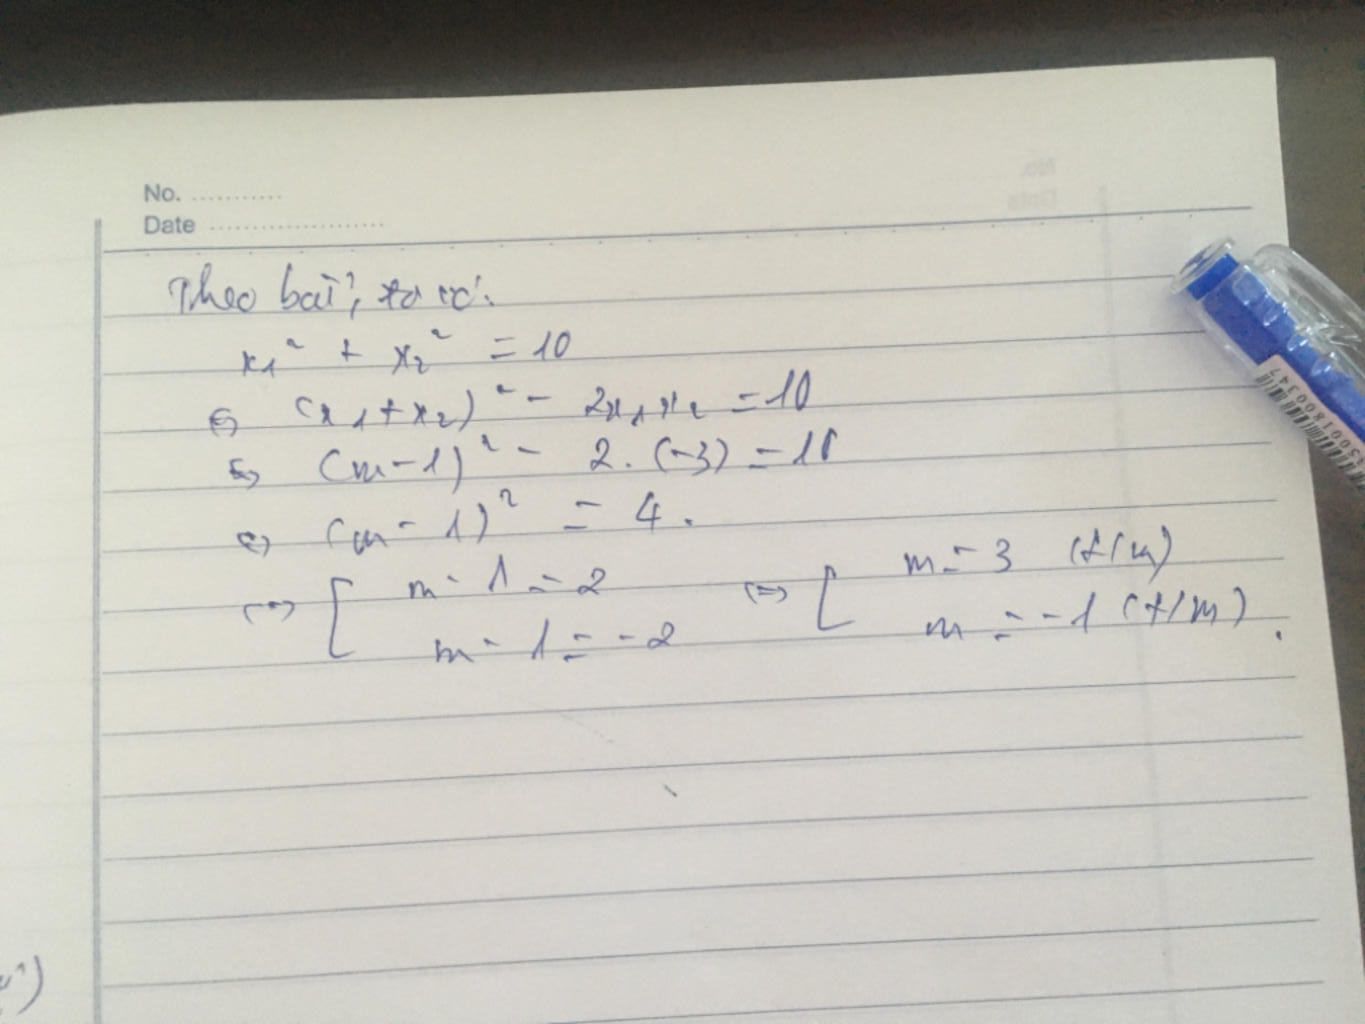 No. ............
Date ......................
Theo bài, ta có:
x₁² + x₂² = 10
⇔ (x₁+x₂)² - 2x₁x₂ = 10
⇔ (m-1)² - 2.(-3) = 10
⇔ (m-1)² = 4.
⇔ [ m-1=2 ⇔ [ m=3 (t/m)
m-1=-2 m=-1 (t/m).